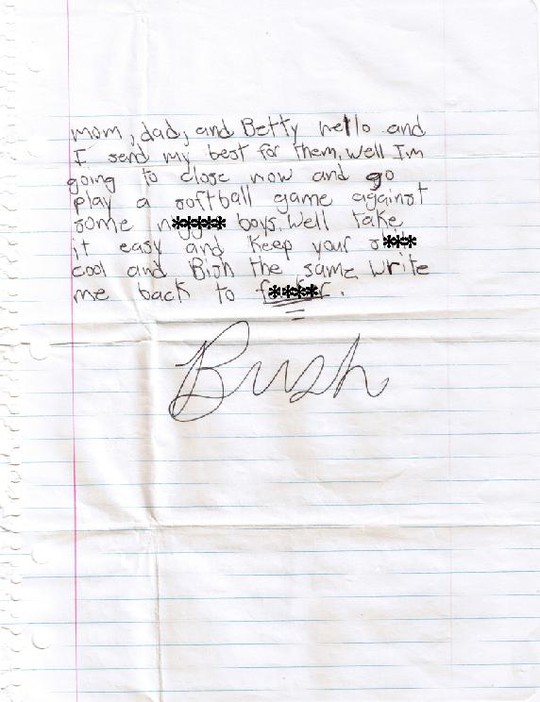 mom, dad, and Betty hello and
I send my best for them, well I'm
going to close now and go
play a softball game against
some n***** boys. Well take
it easy and keep your s***
cool and Bish the same. Write
me back to f****r.
Bush